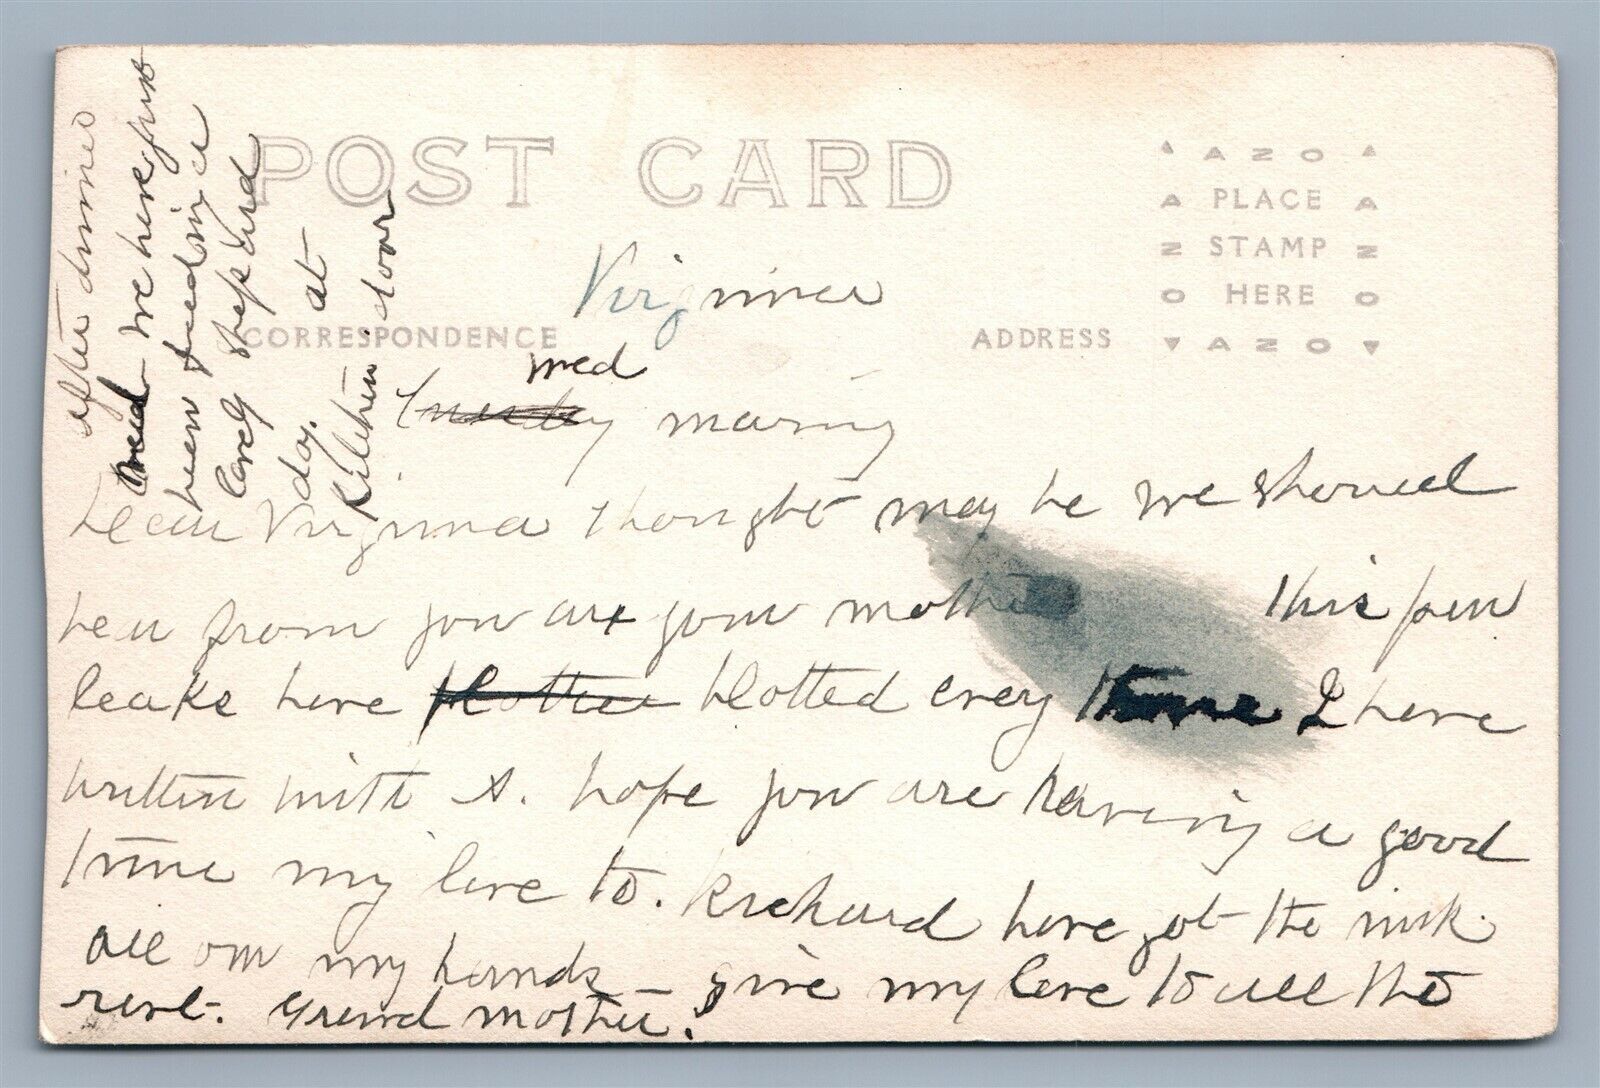 POST CARD
AZO
A PLACE A
Z STAMP Z
O HERE O
AZO
CORRESPONDENCE
ADDRESS
Virginia
wed
Tuesday morning
Dear Virginia thought may be we should
hear from you are your mother this pen
leaks have blotted every time I have
written with it. hope you are having a good
time my love to. Richard have got the ink
all on my hands give my love to all the
rest. Grand mother.
after dinner
wed - we have just
been feeding a
lovely shepherd
dog. at
Kitchen door